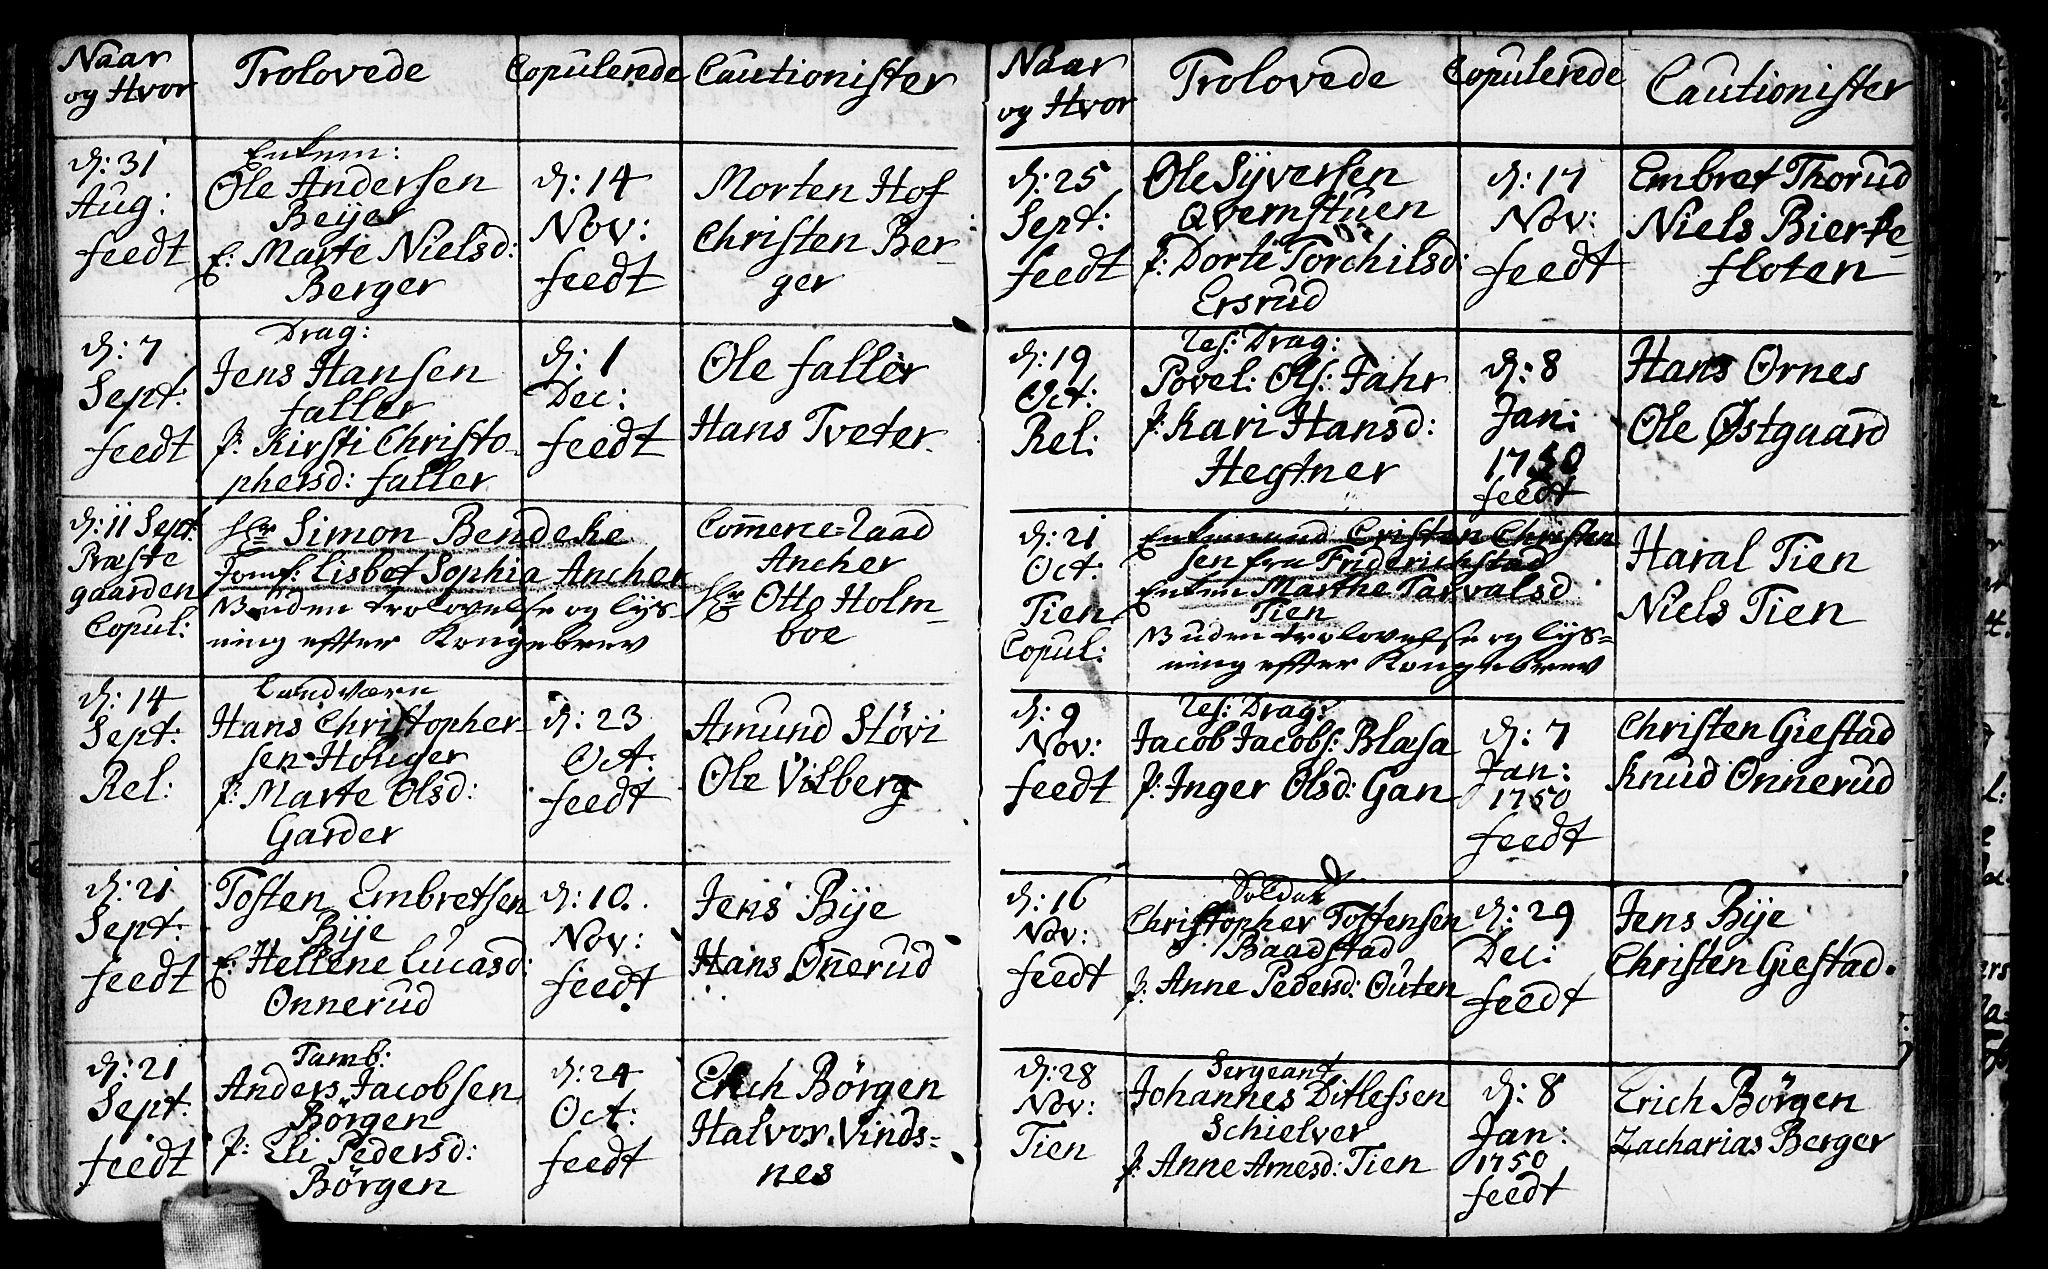 Naar
og Hvor
Trolovede
Copulerede
Cautionister
d: 31
Aug:
feedt
Enkem:
Ole Andersen
Beijer
E: Marte Nielsd:
Berger
d: 14
Nov:
feedt
Morten Hof
Christen Ber-
ger
d: 7
Sept:
feedt
Drag:
Jens Hansen
faller
P: Kirsti Christo-
phersd: faller
d: 1
Dec:
feedt
Ole faller
Hans Tveter
d: 11 Sept:
Præste
gaarden
Copul:
Hr Simon Bendeke
Jomf: Lisbet Sophia Ancher
NB uden trolovelse og lys-
ning efter Kongebrev
Com̄erce-Raad
Ancher
Hr Otto Holm-
boe
d: 14
Sept:
Rel:
Landværn
Hans Christopher-
sen Holiger
P: Marte Olsd:
Garder
d: 23
Oct:
feedt
Amund Støvi
Ole Vilberg
d: 21
Sept:
feedt
Tosten Embretsen
Bije
E: Hellene Lucasd:
Onnerud
d: 10.
Nov:
feedt
Jens Bije
Hans On̄erud
d: 21
Sept:
feedt
Tamb:
Anders Jacobsen
Børgen
P: Eli Pedersd:
Børgen
d: 24
Oct:
feedt
Erich Børgen
Halvor Vinds-
nes
Naar
og Hvor
Trolovede
Copulerede
Cautionister
d: 25
Sept:
feedt
Ole Syversen
Qvernstuen
P: Dorte Torchilsd:
Ersrud
d: 17
Nov:
feedt
Embret Thorud
Niels Bierke-
floten
d: 19
Oct:
Rel:
Res: Drag:
Povel: Ols: Jahr
P: Kari Hansd:
Hegtner
d: 8
Jan:
1750
feedt
Hans Ornes
Ole Østgaard
d: 21
Oct:
Tien
Copul:
Enkemand Cristen Christen
sen fra Friderichstad
Enken Marthe Tarvalsd
Tien
NB uden trolovelse og lys-
ning efter Kongebrev
Haral Tien
Niels Tien
d: 9
Nov:
feedt
Res: Drag:
Jacob Jacobs: Blæsa
P: Inger Olsd: Gan
d: 7
Jan:
1750
feedt
Christen Giestad
Knud Onnerud
d: 16
Nov:
feedt
Soldat
Christopher Tostensen
Baadstad
P: Anne Pedersd: Outen
d: 29
Dec:
feedt
Jens Bije
Christen Giestad.
d: 28
Nov:
Tien
Sergeant
Johannes Ditlefsen
Schielver
P: Anne Arnesd: Tien
d: 8
Jan:
1750
feedt
Erich Børgen
Zacharias Berger